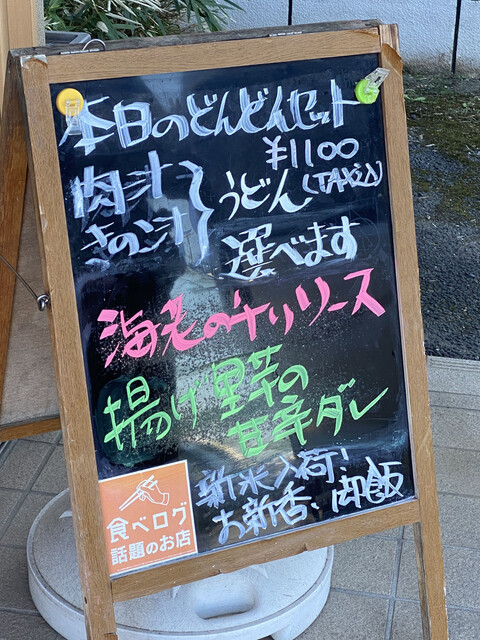 本日のどんどんセット
¥1100
(TAX込)
肉汁
きのこ汁
うどん
選べます
海老のチリソース
揚げ里芋の
甘辛ダレ
新米入荷!
お新香、御飯
食べログ
話題のお店